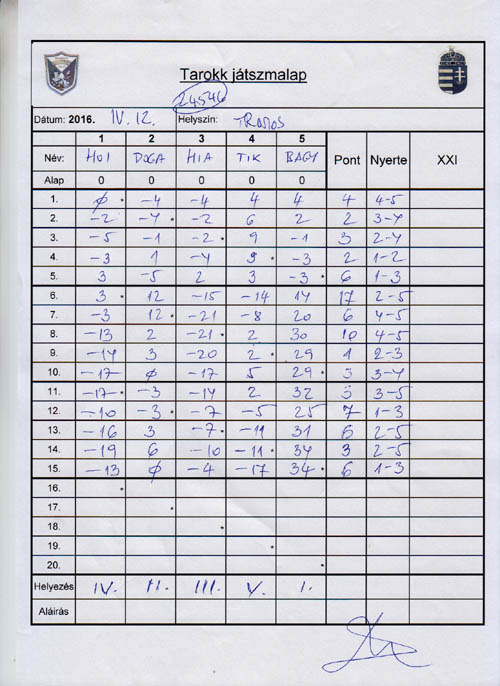 Tarokk játszmalap
24546
Dátum: 2016. IV. 12. Helyszín:
1 2 3 4 5
Név: HUI DOGA HIA TIK BAGY Pont Nyerte XXI
Alap 0 0 0 0 0
1. Ø -4 -4 4 4 4 4-5
2. -2 -4 -2 6 2 2 3-4
3. -5 -1 -2 9 -1 3 2-4
4. -3 1 -4 9 -3 2 1-2
5. 3 -5 2 3 -3 6 1-3
6. 3 12 -15 -14 14 17 2-5
7. -3 12 -21 -8 20 6 4-5
8. -13 2 -21 2 30 10 4-5
9. -14 3 -20 2 29 1 2-3
10. -17 Ø -17 5 29 3 3-4
11. -17 -3 -14 2 32 3 3-5
12. -10 -3 -7 -5 25 7 1-3
13. -16 3 -7 -11 31 6 2-5
14. -19 6 -10 -11 34 3 2-5
15. -13 Ø -4 -17 34 6 1-3
16.
17.
18.
19.
20.
Helyezés IV. II. III. V. I.
Aláírás